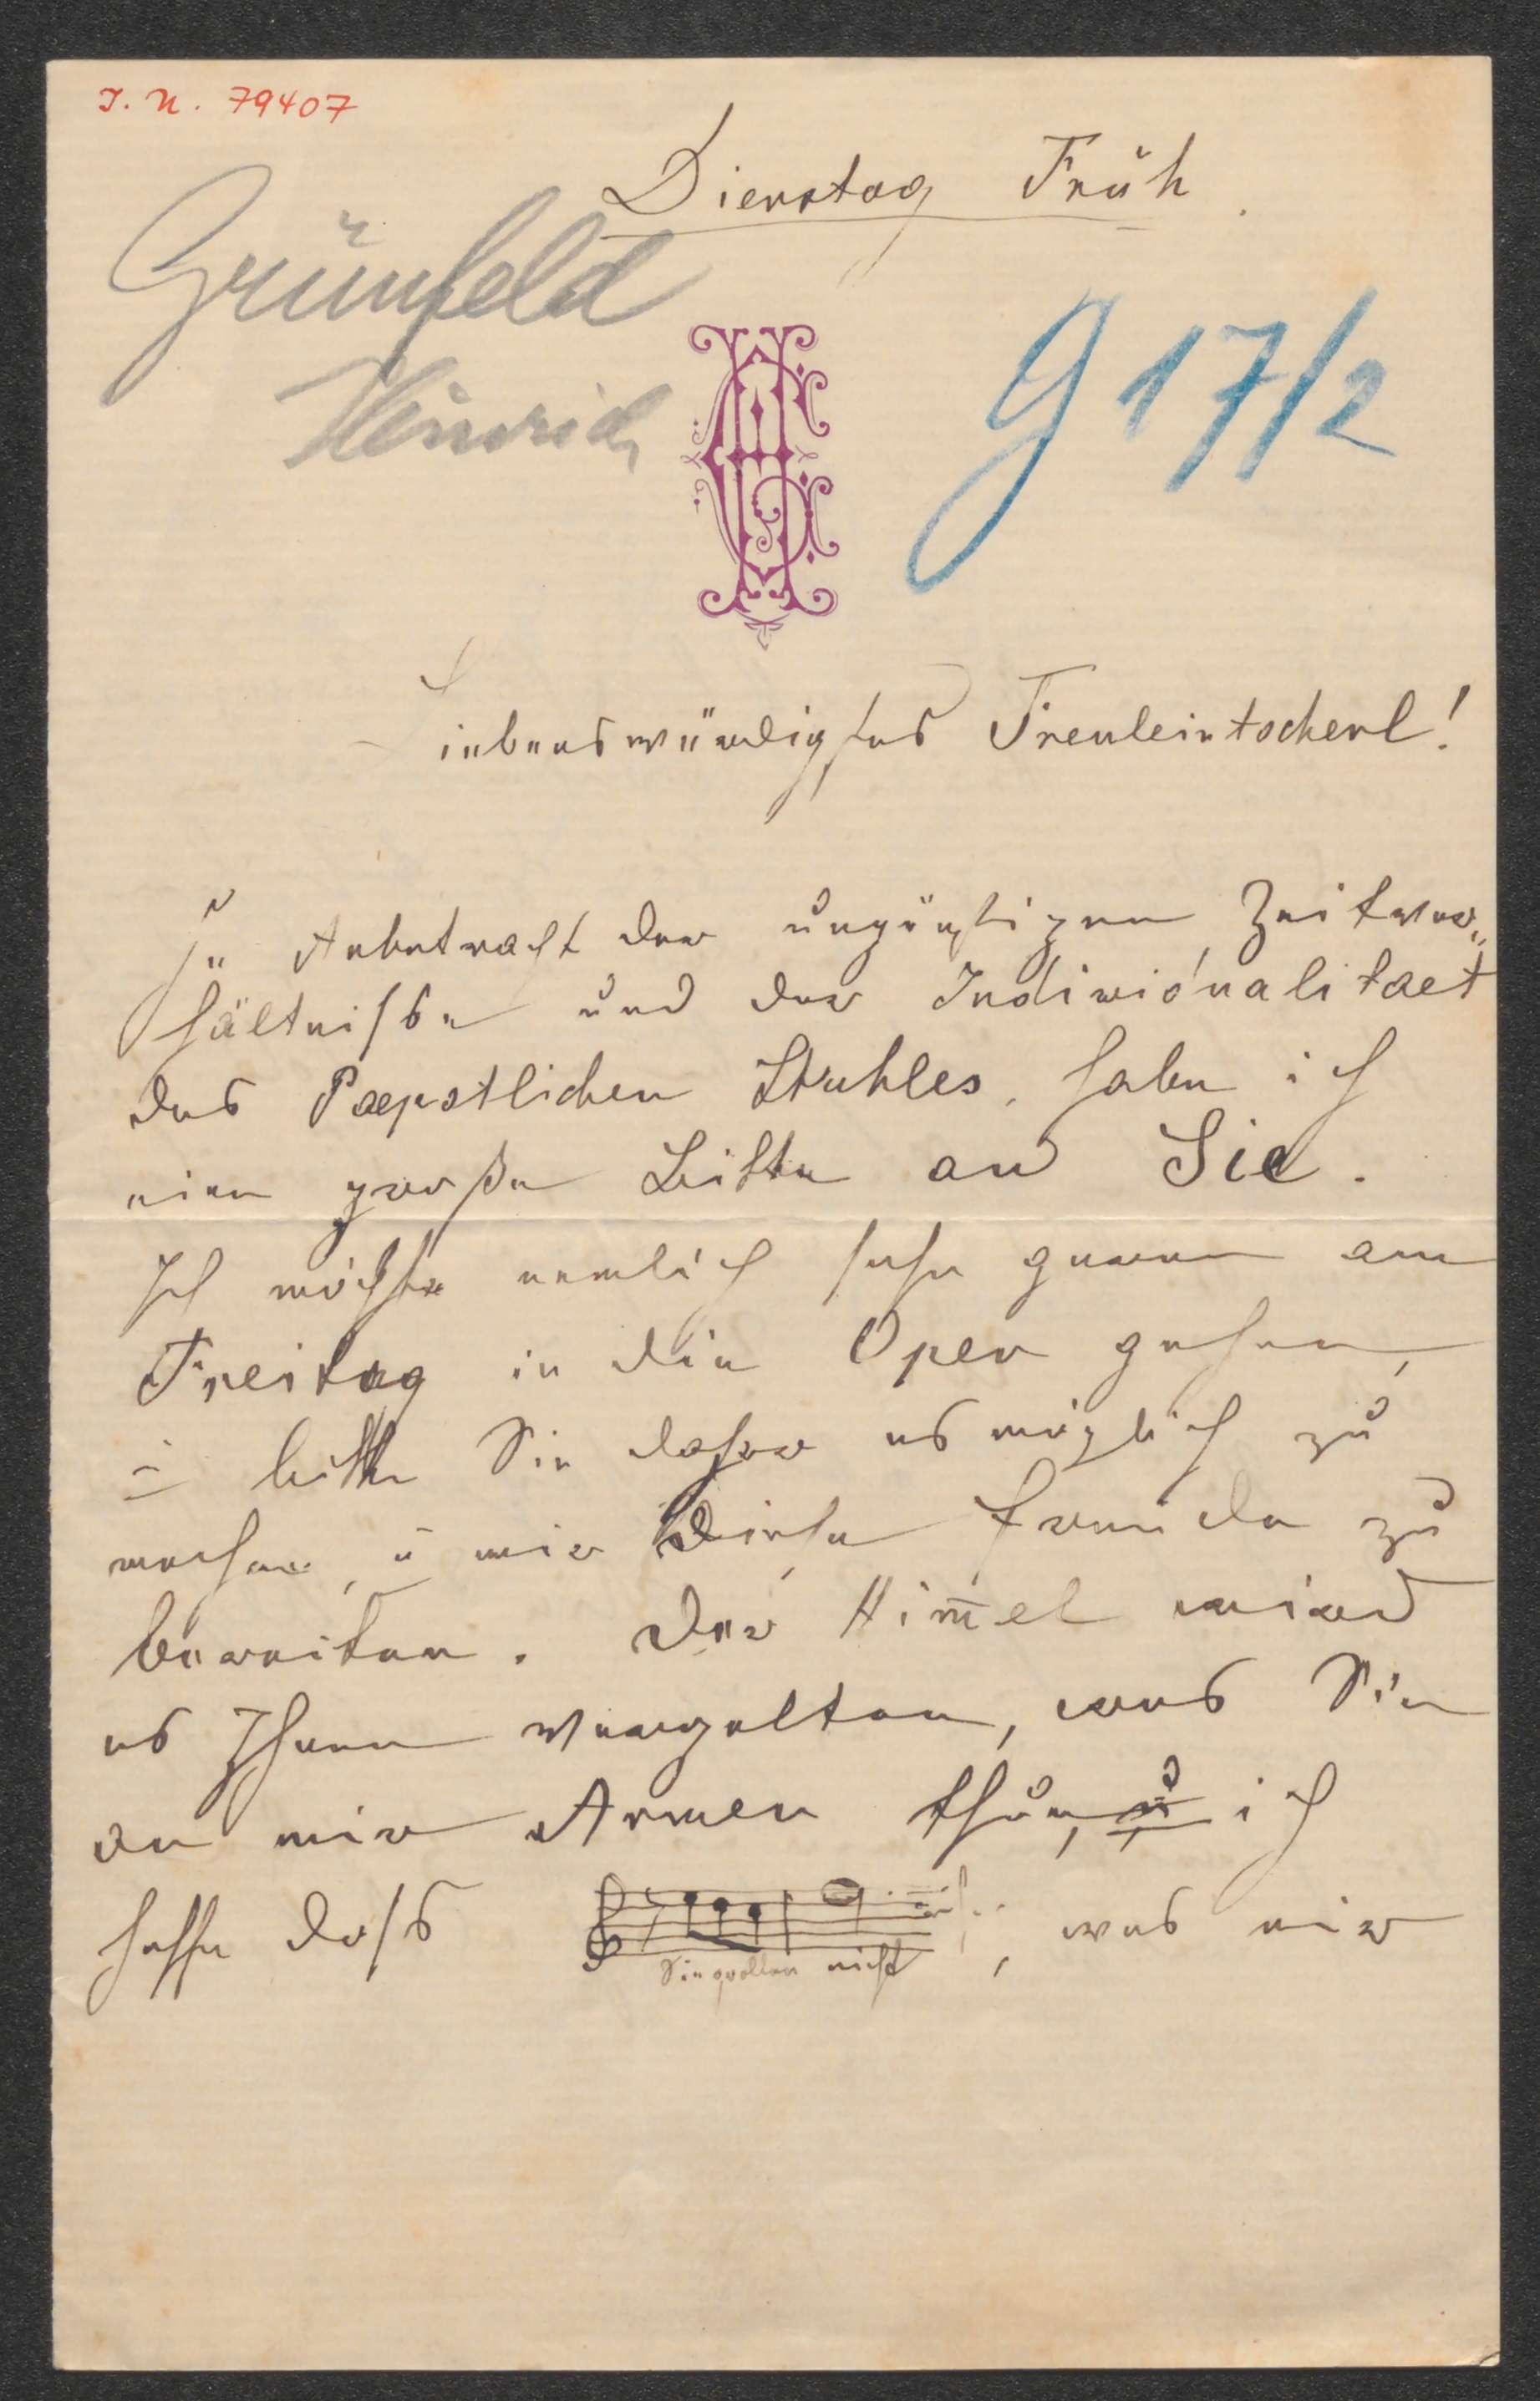 I. N. 79407
Dienstag Früh.
Grünfeld
Heinrich
G 17/2
Liebenswürdigstes Freuleintscherl!
In Anbetracht der ungünstigen Zeitver„
hältnisse und der Individualitaet
des Paepstlichen Stuhles, habe ich
eine große Bitte an Sie.
Ich möchte nemlich sehr gerne am
Freitag in die Oper gehen,
u bitte Sie daher es möglich zu
machen, u mir diese Freude zu
bereiten. Der Him̄el wird
es Ihnen vergelten, was Sie
an mir Armen thun, u ich
hoffe dass
Sie grollen nicht
, was mir